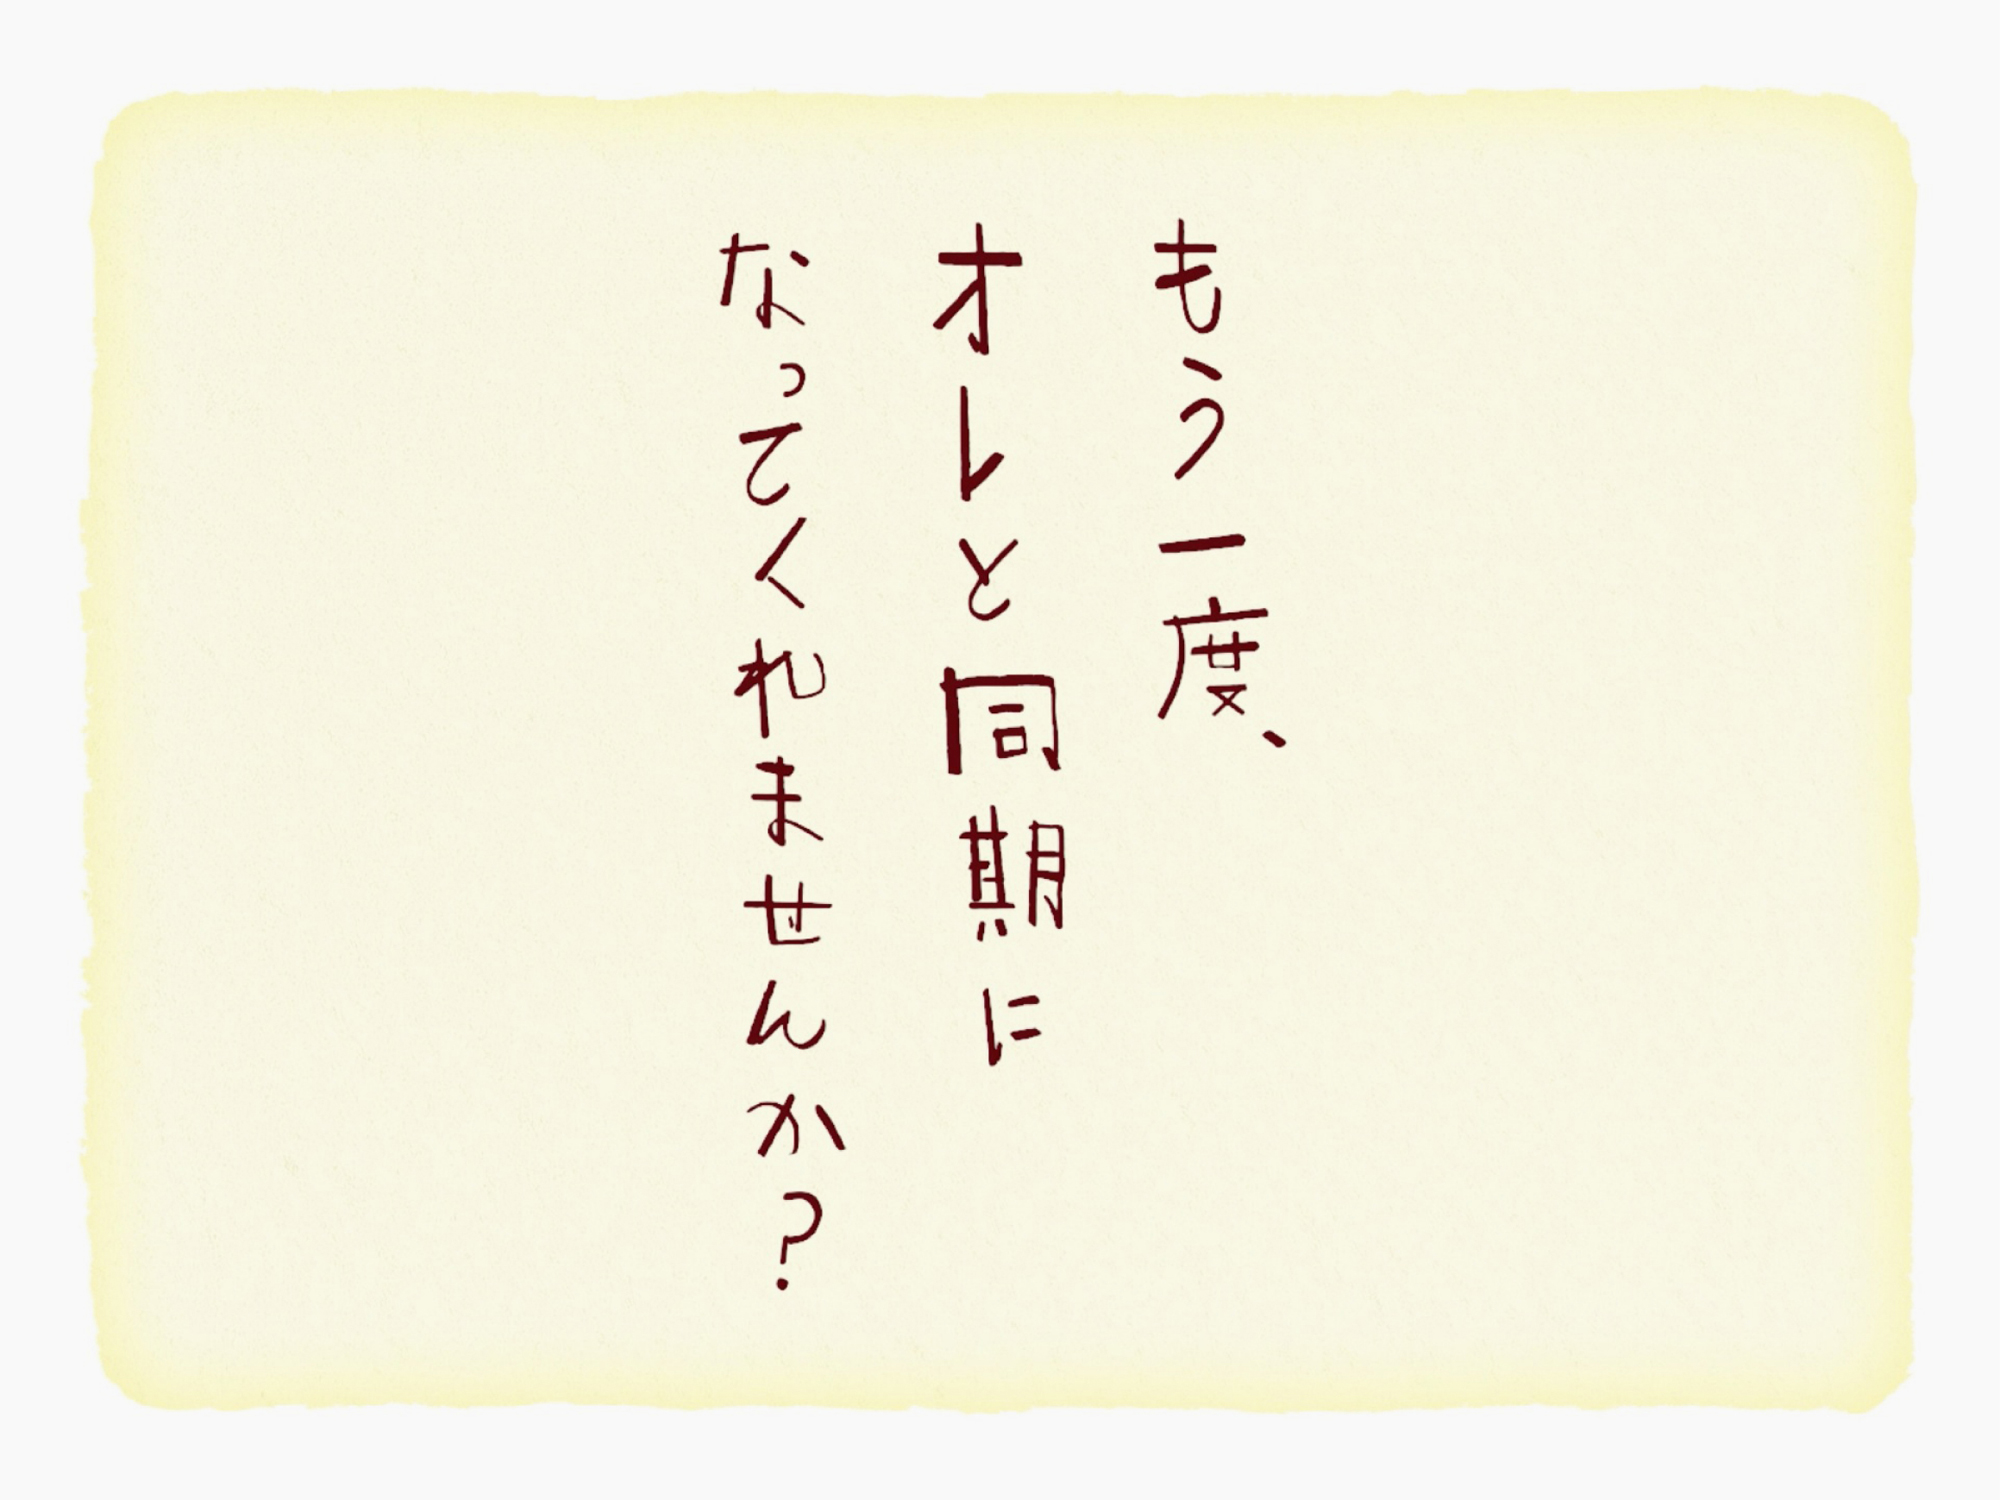 もう一度、
オレと同期に
なってくれませんか?